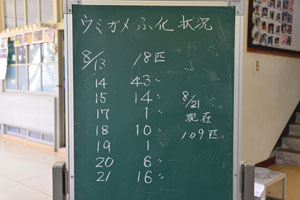 ウミガメふ化状況
8/13 18匹
14 43〃
15 14〃
17 1〃
18 10〃
19 1〃
20 6〃
21 16〃
8/21
現在
109匹